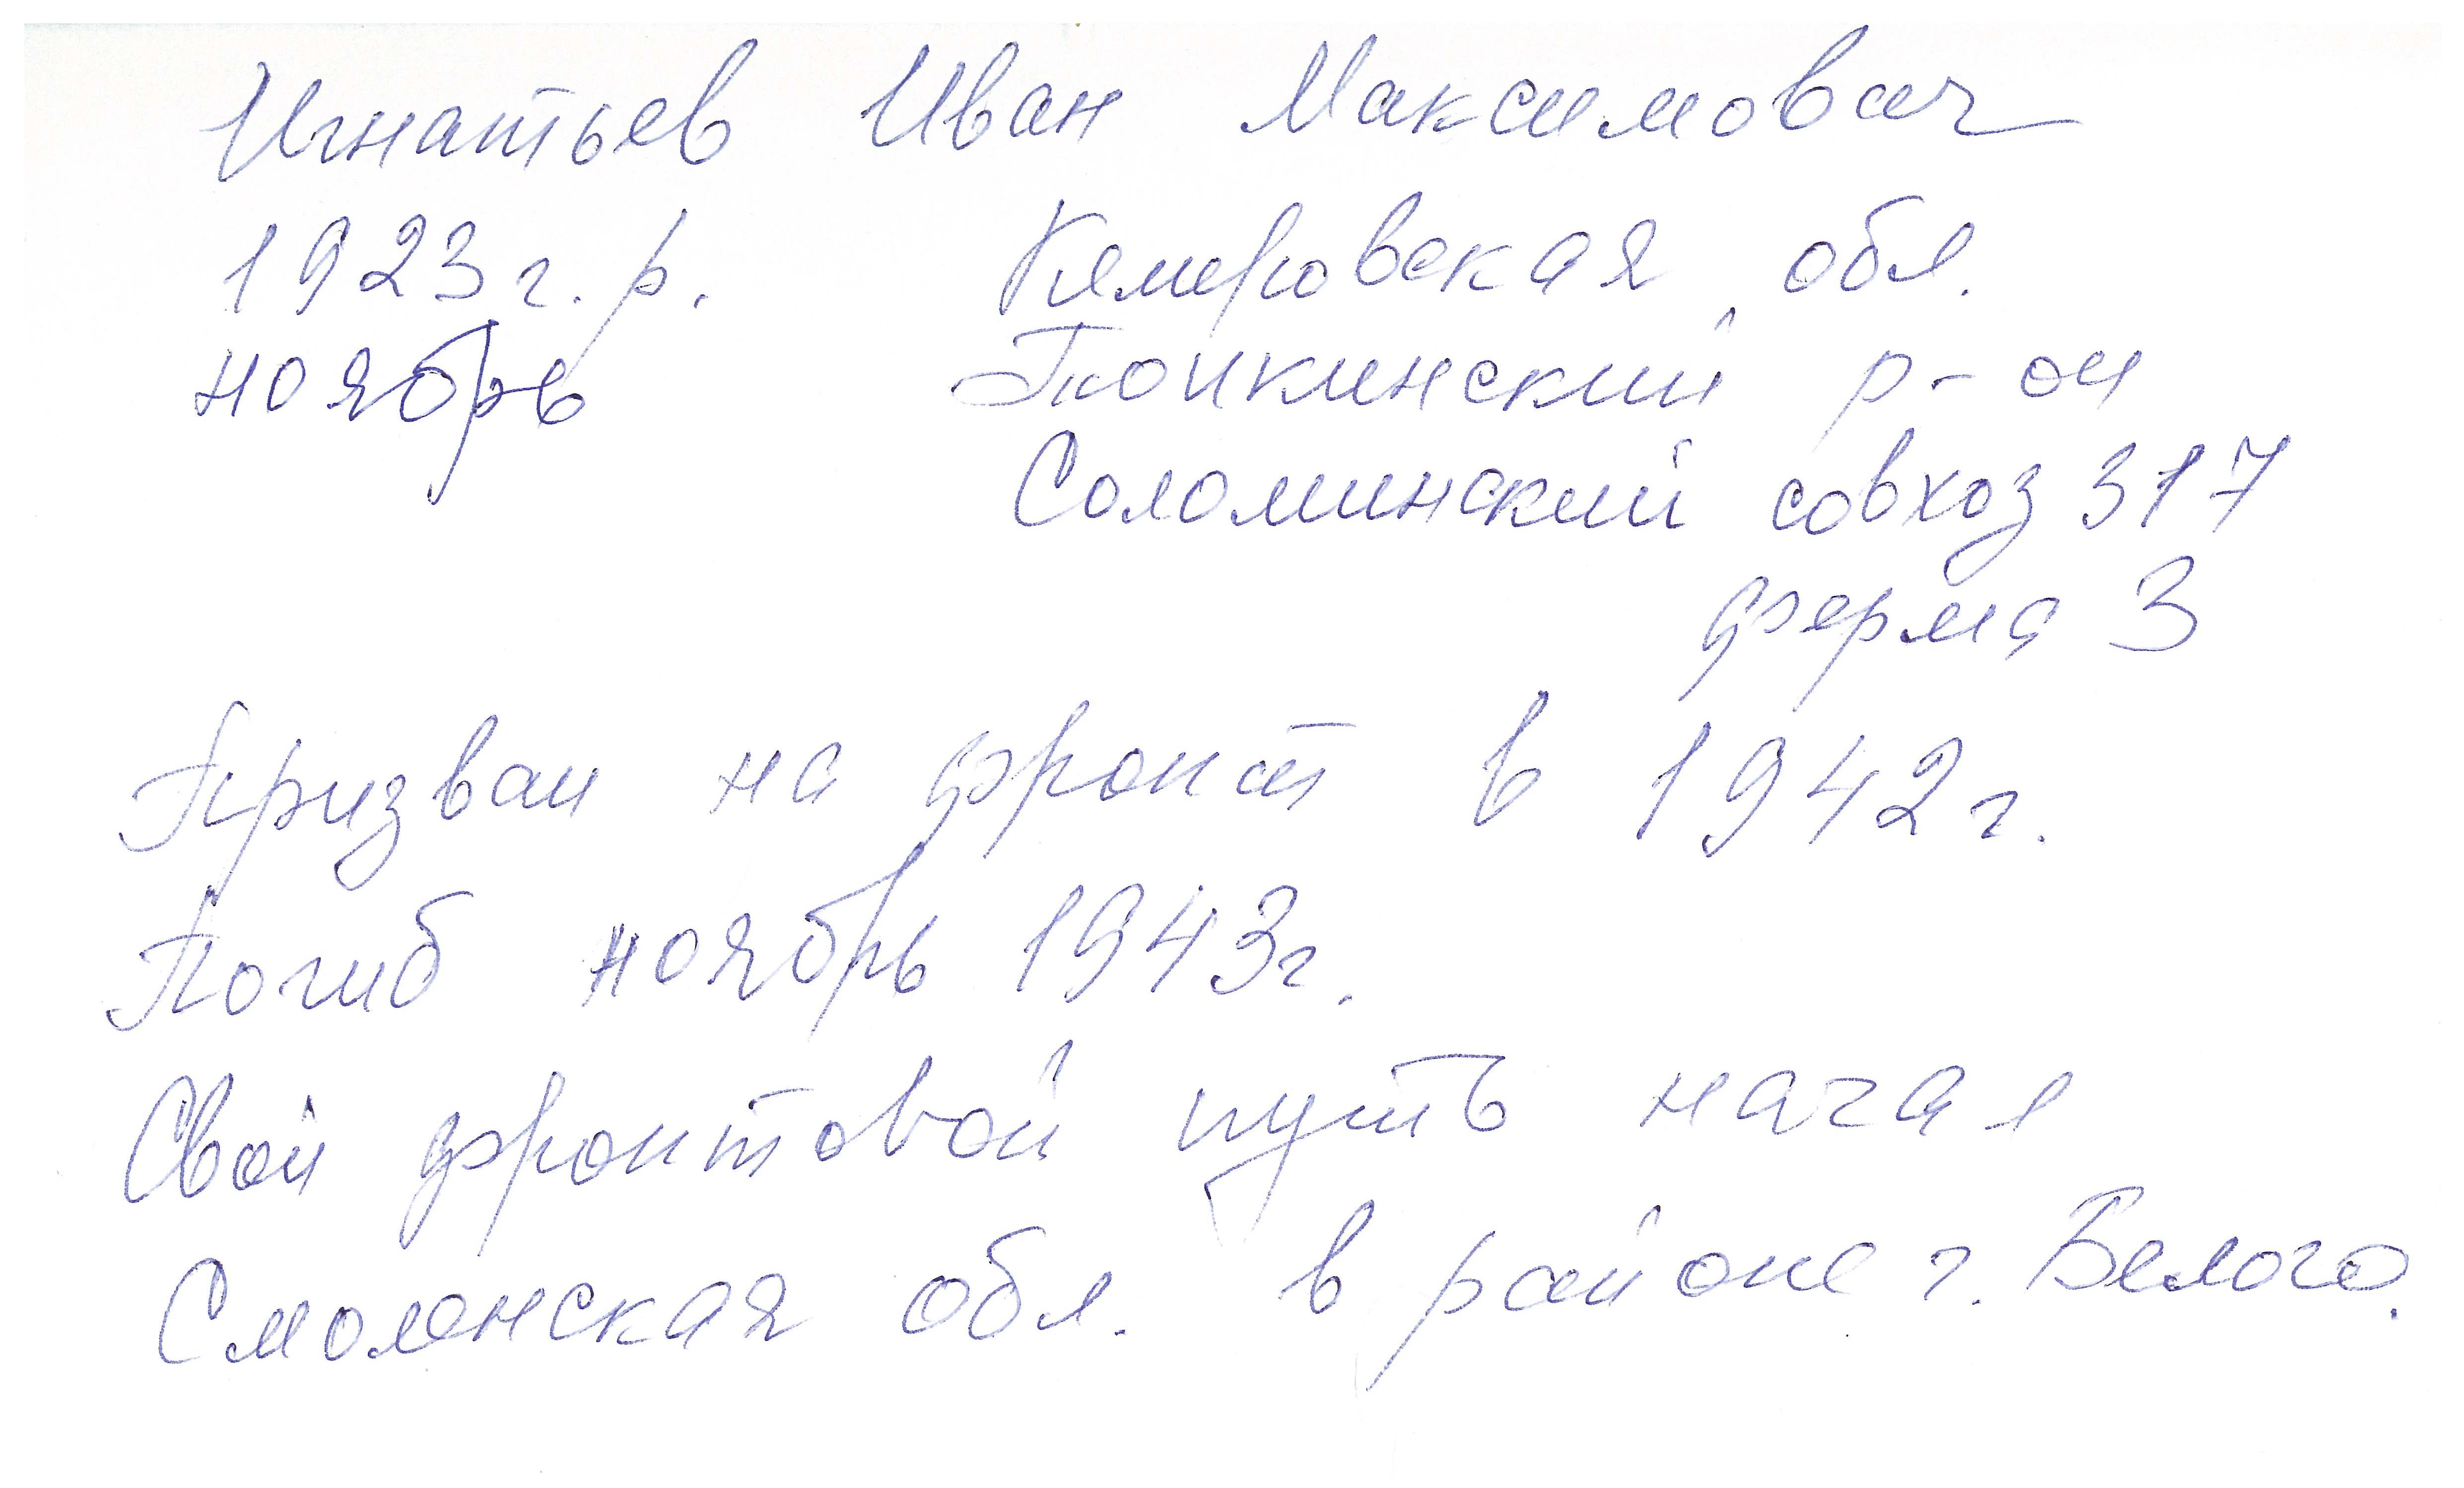 Игнатьев Иван Максимович
1923 г. р. Кемеровская обл.
ноябрь Топкинский р-он
Соломинский совхоз 317
ферма 3
Призван на фронт в 1942 г.
Погиб ноябрь 1943 г.
Свой фронтовой путь начал
Смоленская обл. в районе г. Белого.